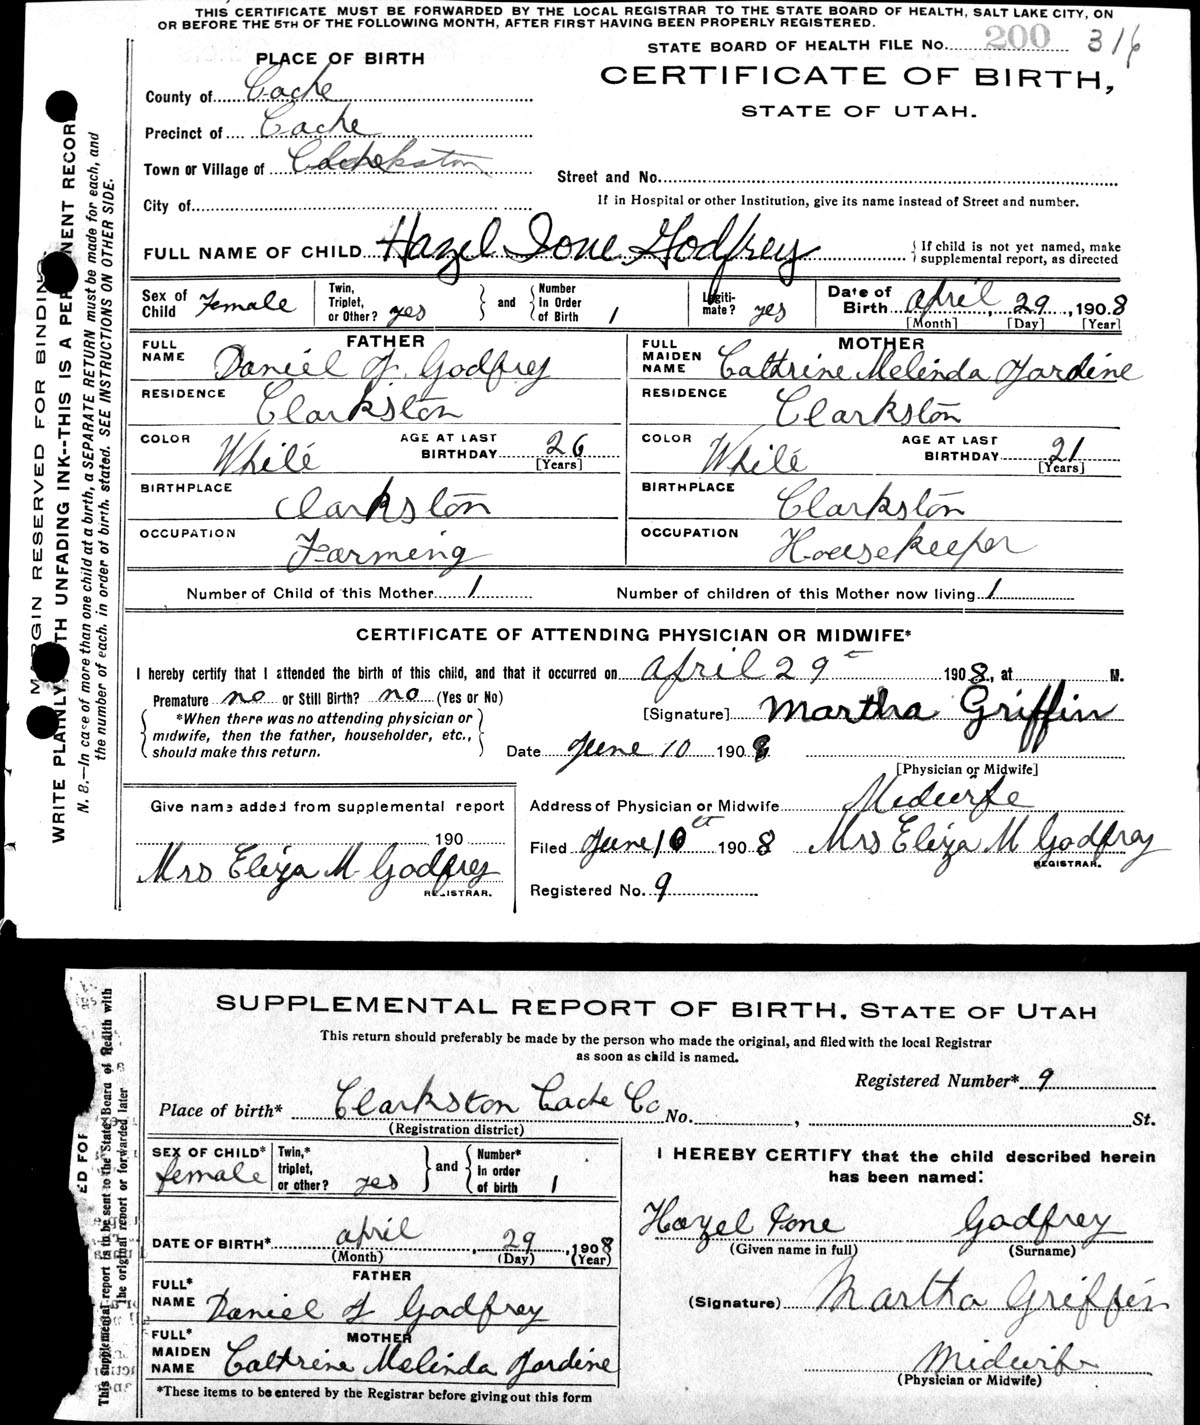 THIS CERTIFICATE MUST BE FORWARDED BY THE LOCAL REGISTRAR TO THE STATE BOARD OF HEALTH, SALT LAKE CITY, ON
OR BEFORE THE 5TH OF THE FOLLOWING MONTH, AFTER FIRST HAVING BEEN PROPERLY REGISTERED.
STATE BOARD OF HEALTH FILE No. 200 316
PLACE OF BIRTH
CERTIFICATE OF BIRTH,
STATE OF UTAH.
County of Cache
Precinct of Cache
Town or Village of
Street and No.
City of
If in Hospital or other Institution, give its name instead of Street and number.
FULL NAME OF CHILD Hazel Ione Godfrey
If child is not yet named, make
supplemental report, as directed
Sex of Child Female
Twin, Triplet, or Other? yes
and
Number in Order of Birth 1
Legitimate? yes
Date of Birth April 29, 1908
[Month] [Day] [Year]
FATHER
FULL NAME Daniel J. Godfrey
RESIDENCE Clarkston
COLOR White
AGE AT LAST BIRTHDAY 26
[Years]
BIRTHPLACE Clarkston
OCCUPATION Farming
MOTHER
FULL MAIDEN NAME Cathrine Melinda Jardine
RESIDENCE Clarkston
COLOR White
AGE AT LAST BIRTHDAY 21
[Years]
BIRTHPLACE Clarkston
OCCUPATION Housekeeper
Number of Child of this Mother 1
Number of children of this Mother now living 1
CERTIFICATE OF ATTENDING PHYSICIAN OR MIDWIFE*
I hereby certify that I attended the birth of this child, and that it occurred on April 29 1908, at M.
Premature no or Still Birth? no (Yes or No)
*When there was no attending physician or
midwife, then the father, householder, etc.,
should make this return.
[Signature] Martha Griffin
Date June 10 1908
[Physician or Midwife]
Give name added from supplemental report
190
Mrs Eliza M Godfrey
REGISTRAR.
Address of Physician or Midwife Midwife
Filed June 10 1908 Mrs Eliza M Godfrey
REGISTRAR.
Registered No. 9
MARGIN RESERVED FOR BINDING
WRITE PLAINLY WITH UNFADING INK--THIS IS A PERMANENT RECORD
N. B.—In case of more than one child at a birth, a SEPARATE RETURN must be made for each, and
the number of each, in order of birth, stated. SEE INSTRUCTIONS ON OTHER SIDE.
SUPPLEMENTAL REPORT OF BIRTH, STATE OF UTAH
This return should preferably be made by the person who made the original, and filed with the local Registrar
as soon as child is named.
Registered Number* 9
Place of birth* Clarkston Cache Co No. , St.
(Registration district)
SEX OF CHILD* female
Twin,* triplet, or other? yes
and
Number* In order of birth 1
I HEREBY CERTIFY that the child described herein
has been named:
Hazel Ione Godfrey
(Given name in full) (Surname)
DATE OF BIRTH* April, 29, 1908
(Month) (Day) (Year)
FATHER
FULL* NAME Daniel J Godfrey
(Signature) Martha Griffin
MOTHER
FULL* MAIDEN NAME Cathrine Melinda Jardine
Midwife
(Physician or Midwife)
*These items to be entered by the Registrar before giving out this form
ED FOR
This supplemental report is to be sent to the State Board of Health with
the original report or forwarded later